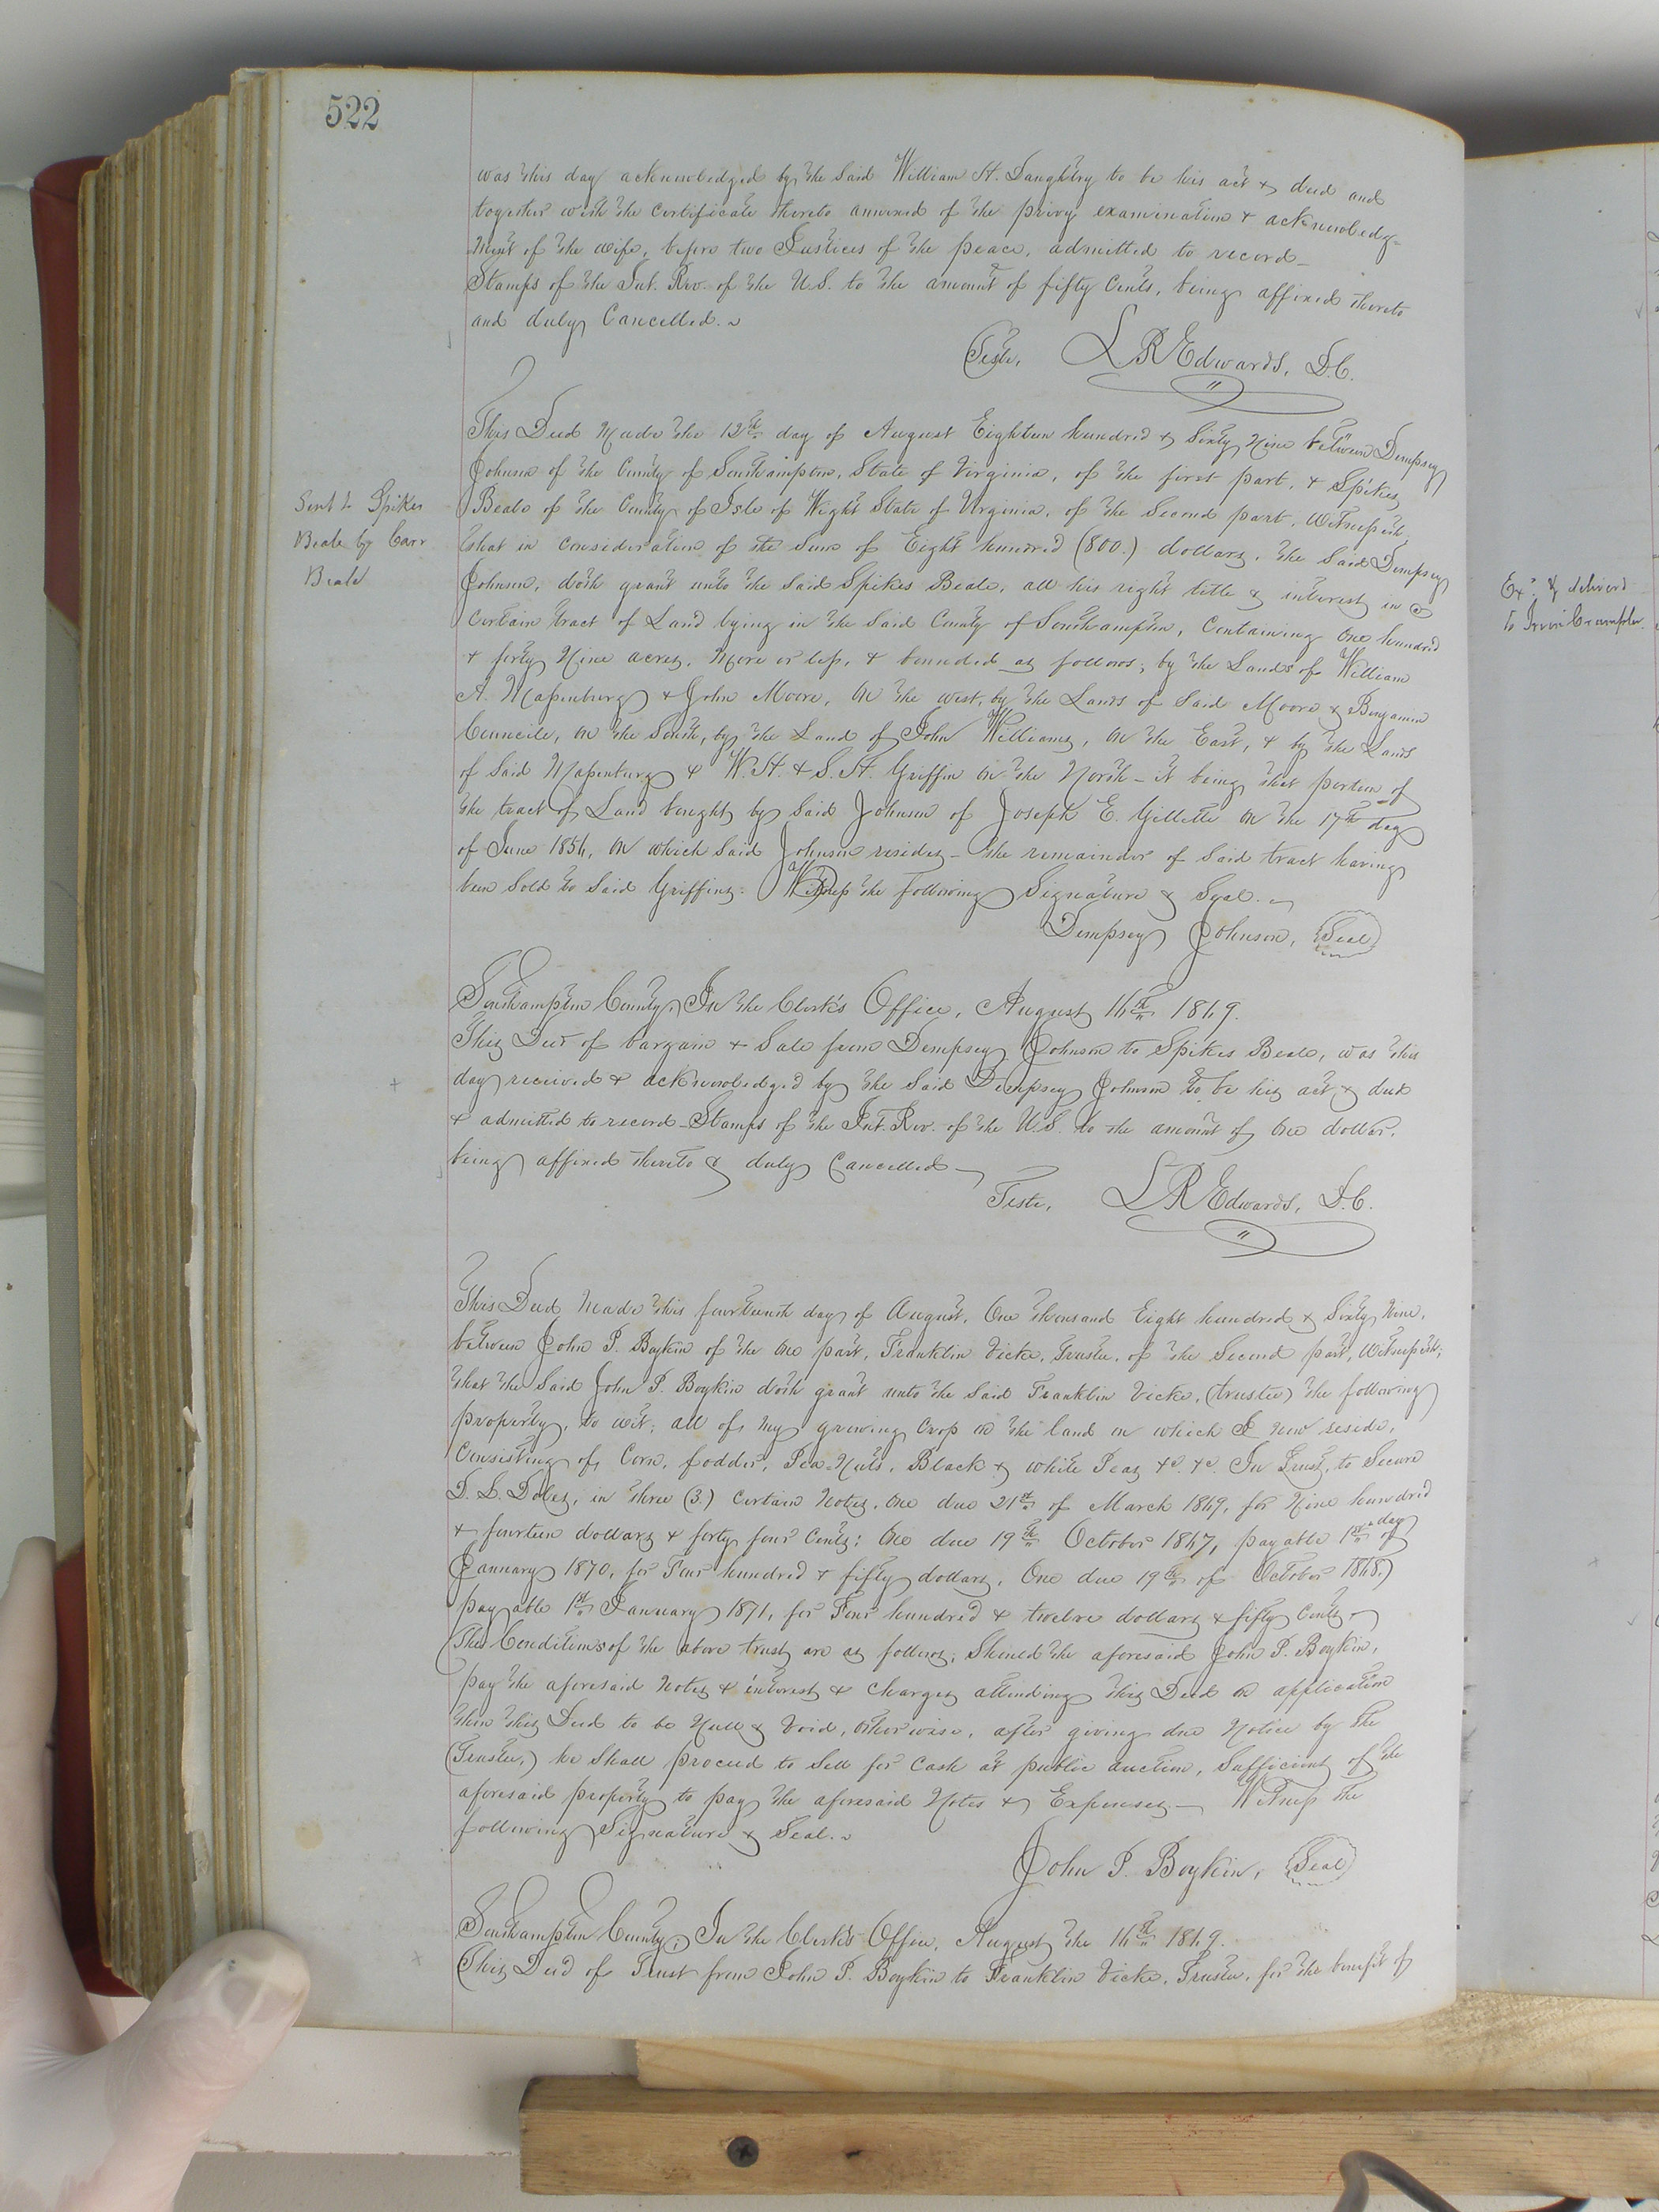 522
was this day acknowledged by the said William H. Daughtry to be his act & deed and
together with the certificate thereto annexed of the privy examination & acknowledg-
ment of the wife, before two Justices of the peace, admitted to record—
Stamps of the Int. Rev. of the U.S. to the amount of fifty Cents, being affixed thereto
and duly Cancelled.~
Teste, L R Edwards, D.C.
This Deed Made the 12th day of August Eighteen hundred & Sixty Nine between Dempsey
Johnson of the County of Southampton, State of Virginia, of the first part, & Spikes
Beale of the County of Isle of Wight State of Virginia, of the Second part, Witnesseth,
that in consideration of the sum of Eight hundred (800.) dollars, the Said Dempsey
Johnson, doth grant unto the Said Spikes Beale, all his right title & interest in a
Certain tract of Land lying in the Said County of Southampton, Containing One hundred
& forty Nine acres, More or less, & bounded as follows; by the Lands of William
A. Massenburg & John Moore, on the west, by the Lands of Said Moore & Benjamin
Councile, on the South, by the Land of John Williams, on the East, & by the Lands
of Said Massenburg & W. H. & S. H. Griffin on the North— it being that portion of
the tract of Land bought by Said Johnson of Joseph E. Gillette on the 17th day
of June 1854, on which Said Johnson resides— the remainder of Said tract having
been Sold to Said Griffins. Witness the following Signature & Seal.~
Dempsey Johnson, Seal
Sent to Spikes
Beale by Carr
Beale
Southampton County, In the Clerk's Office, August 16th 1869.
This Deed of bargain & Sale from Dempsey Johnson to Spikes Beale, was this
day received & acknowledged by the Said Dempsey Johnson to be his act & deed
& admitted to record— Stamps of the Int. Rev. of the U.S. to the amount of One dollar,
being affixed thereto & duly Cancelled—
Teste, L R Edwards, D.C.
This Deed Made this fourteenth day of August, One thousand Eight hundred & Sixty Nine,
between John P. Boykin of the One part, Franklin Vicke, Trustee, of the Second part, Witnesseth;
that the Said John P. Boykin doth grant unto the Said Franklin Vicke, (trustee) the following
property, to wit; all of my growing Crop on the land on which I now reside,
Consisting of Corn, fodder, Pea-Nuts, Black & white Peas &c. &c. In Trust, to Secure
D. D. Doles, in three (3.) Certain Notes, One due 21st of March 1869, for Nine hundred
& fourteen dollars & forty four Cents; One due 19th October 1867, payable 1st day of
January 1870, for Four hundred & fifty dollars. One due 19th of October 1868,
payable 1st January 1871, for Four hundred & twelve dollars & fifty Cents—
The Conditions of the above trust are as follows; Should the aforesaid John P. Boykin,
pay the aforesaid Notes & interest & Charges attending this Deed on application
then this Deed to be Null & Void, otherwise, after giving due Notice by the
(Trustee,) he Shall proceed to Sell for Cash at public auction, Sufficient of the
aforesaid property to pay the aforesaid Notes & Expenses— Witness the
following Signature & Seal.~
John P. Boykin, Seal
Southampton County, In the Clerk's Office, August the 16th 1869.
This Deed of Trust from John P. Boykin to Franklin Vicke, Trustee, for the benefit of
Exd. & delivered
to